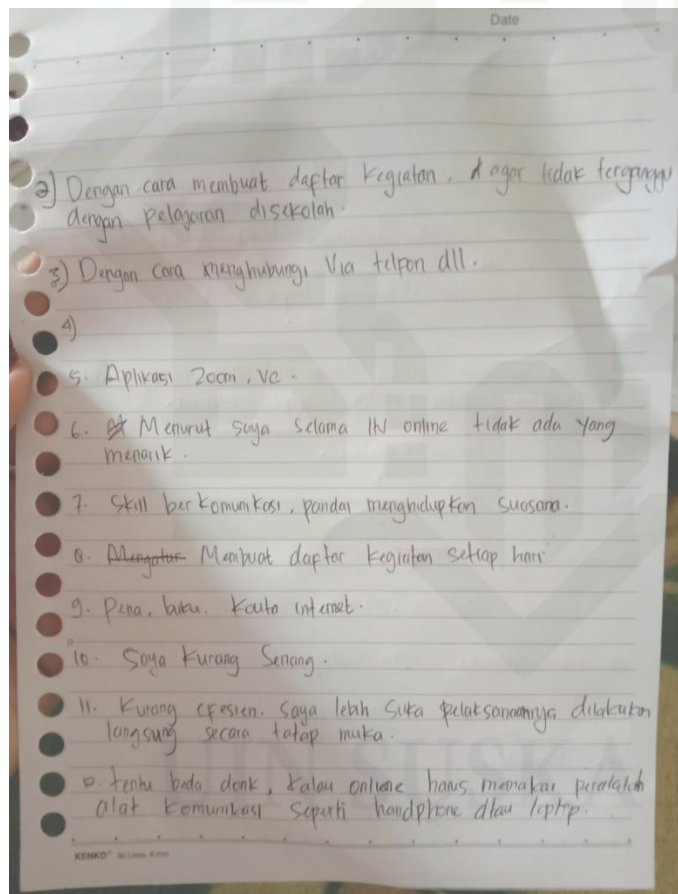 Date
2) Dengan cara membuat daftar kegiatan. agar tidak terganggu
dengan pelajaran disekolah.
3) Dengan cara menghubungi Via telpon dll.
4)
5. Aplikasi Zoom, VC.
6. Menurut saya selama IN online tidak ada yang
menarik.
7. Skill berkomunikasi, pandai menghidupkan suasana.
8. Mengatur Membuat daftar kegiatan setiap hari
9. Pena, buku. Kouta internet.
10. Saya Kurang Senang.
11. Kurang efesien. Saya lebih suka pelaksanaannya dilakukan
langsung secara tatap muka.
tentu beda donk, kalau online harus memakai peralatan
alat komunikasi seperti handphone atau leptop.
UIN SUSKA
KENKO